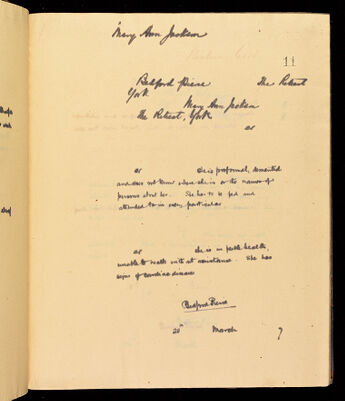 Mary Ann Jackson
11
Bedford Pierce The Retreat
York
Mary Ann Jackson
The Retreat, York
or
or She is profoundly demented
and does not know where she is or the names of
persons about her. She has to be fed and
attended to in every particular
or she is in feeble health,
unable to walk without assistance. She has
signs of cardiac disease
Bedford Pierce
20 March 7